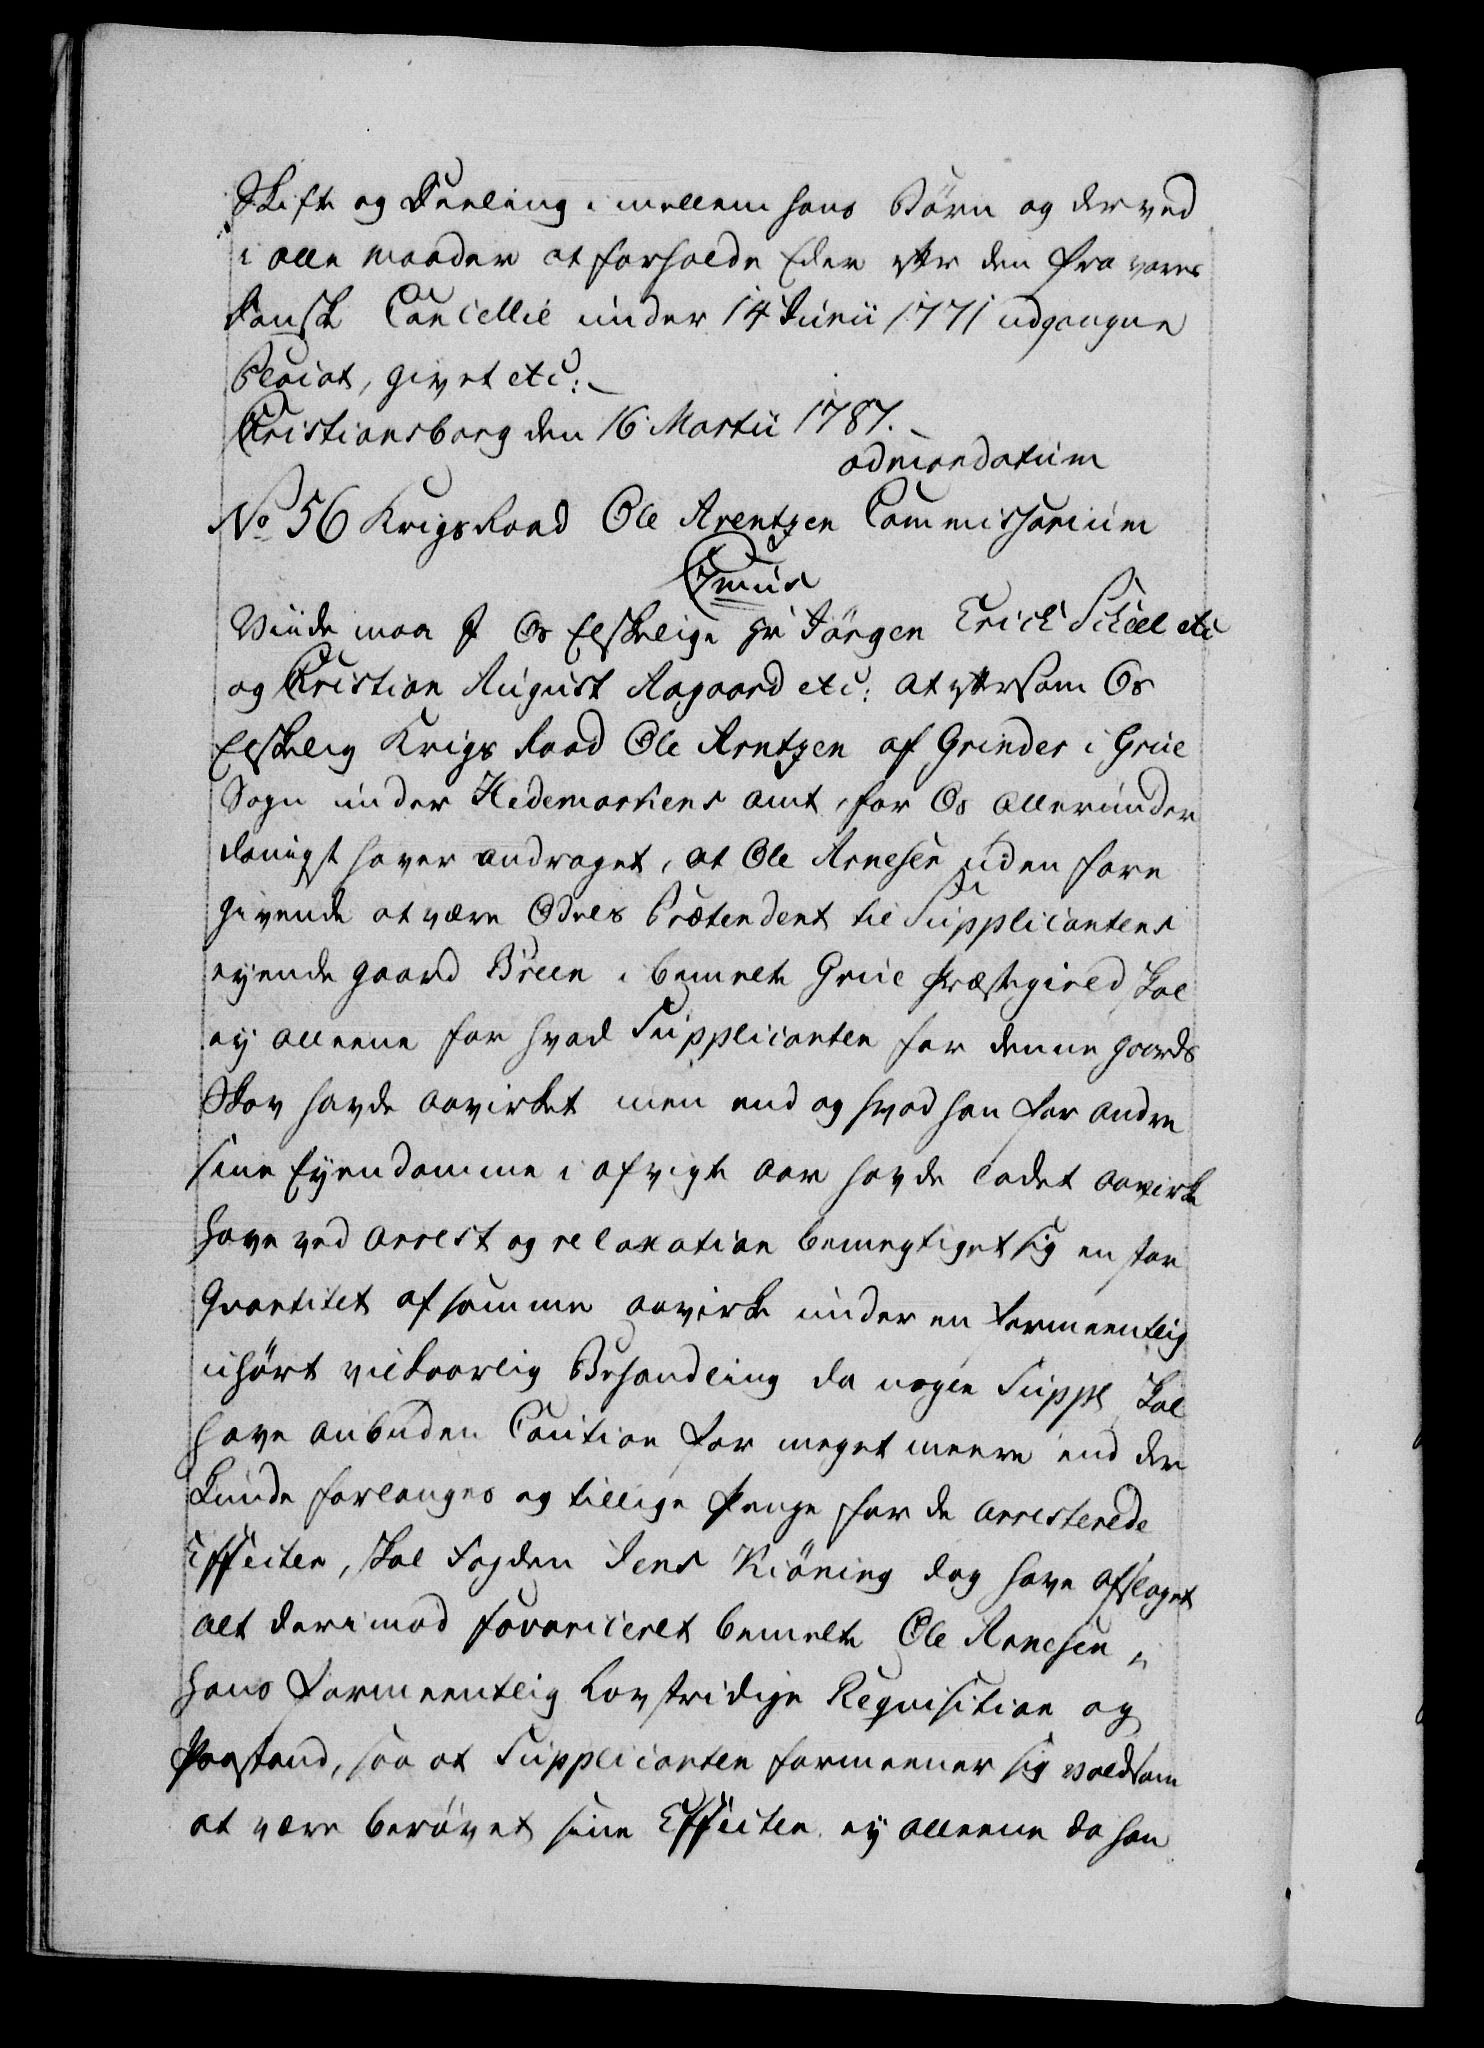 Skifte og Deeling imellem hans Børn og derved
i alle maader at forholde Eder efter den fra vores
Danske Cancellie under 14 Junii 1771 udgangne
Placat, givet etc:
Christiansborg den 16 Martii 1787.
ad mandatum
No 56 Krigs Raad Ole Arentzen Commissorium
C 7mus
Viide maa I Os Elskelige Hr Jørgen Erich Scheel etc
og Christian August Aagaard etc: at eftersom Os
Elskelig Krigs Raad Ole Arntzen af Grinder i Grue
Sogn under Hedemarkens Amt, for Os allerunder
danigst haver andraget, at Ole Arnesen uden fore
givende at være Odels Prætendent til Supplicantens
eyende gaard Breen i bemelte Grue Præstegield skal
ey alleene for hvad Supplicanten for denne gaards
Skov havde aavirket men end og hvad han for andre
sine Eyendomme i afvigte aar havde ladet aavirke
have ved arrest og relaxation bemegtiget sig en stor
Quantitet af samme aavirke under en formeentlig
uhørt vilkaarlig Behandling da uagtet Suppl skal
have anbuden Caution for meget meere end der
kunde forlanges og tillige Penge for de arresterede
Effecter, skal Fogden Jens Kiøning dog have afslaget
alt derimod favoriceret bemelte Ole Arnesen i
hans formeentlig Lovstridige Requisition og
Paastand, saa at Supplicanten formeener sig voldsom
at være berøvet sine Effecter ey alleene da han